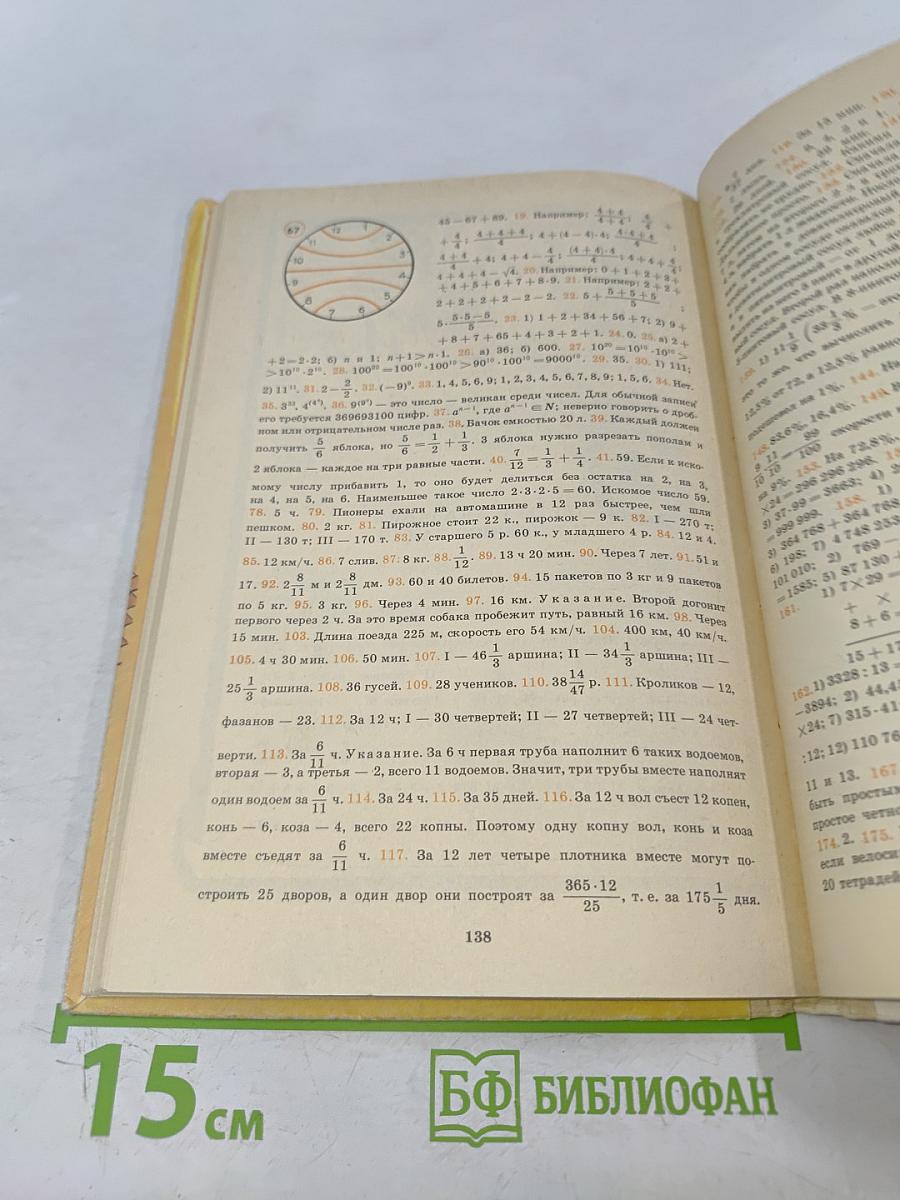 67
12 1 2 3 4 5 6 7 8 9 10 11
45 − 67 + 89. 19. Например: (4+4)/(4+4); 4/4 +
+ 4/4; (4+4+4)/4; 4+(4−4)·4; (4·4+4)/4;
(4+4)/4 + 4; 4+4−4/4; ((4+4)·4)/4; 4+4+4/4;
4+4+4−√4. 20. Например: 0+1+2+3+
+4+5+6+7+8·9. 21. Например: 2+2+
2+2+2+2−2−2. 22. 5+(5+5+5)/5;
5·(5·5−5)/5. 23. 1) 1+2+34+56+7; 2) 9+
+8+7+65+4+3+2+1. 24. 0. 25. а) 2+
+2=2·2; б) n и 1; n+1>n·1. 26. а) 36; б) 600. 27. 10²⁰=10¹⁰·10¹⁰>
>10¹⁰·2¹⁰. 28. 100²⁰=100¹⁰·100¹⁰>90¹⁰·100¹⁰=9000¹⁰. 29. 35. 30. 1) 111;
2) 11¹¹. 31. 2−2/2. 32. (−9)⁹. 33. 1, 4, 5, 6, 9; 1, 2, 3, 4, 5, 6, 7, 8, 9; 1, 5, 6. 34. Нет.
35. 3³³, 4^(4⁴). 36. 9^(9⁹) — это число — великан среди чисел. Для обычной записи
его требуется 369693100 цифр. 37. aⁿ⁻¹, где aⁿ⁻¹ ∈ N; неверно говорить о дроб-
ном или отрицательном числе раз. 38. Бачок емкостью 20 л. 39. Каждый должен
получить 5/6 яблока, но 5/6 = 1/2 + 1/3. 3 яблока нужно разрезать пополам и
2 яблока — каждое на три равные части. 40. 7/12 = 1/3 + 1/4. 41. 59. Если к иско-
мому числу прибавить 1, то оно будет делиться без остатка на 2, на 3,
на 4, на 5, на 6. Наименьшее такое число 2·3·2·5=60. Искомое число 59.
78. 5 ч. 79. Пионеры ехали на автомашине в 12 раз быстрее, чем шли
пешком. 80. 2 кг. 81. Пирожное стоит 22 к., пирожок — 9 к. 82. I — 270 т;
II — 130 т; III — 170 т. 83. У старшего 5 р. 60 к., у младшего 4 р. 84. 12 и 4.
85. 12 км/ч. 86. 7 слив. 87. 8 кг. 88. 1/12. 89. 13 ч 20 мин. 90. Через 7 лет. 91. 51 и
17. 92. 2 8/11 м и 2 8/11 дм. 93. 60 и 40 билетов. 94. 15 пакетов по 3 кг и 9 пакетов
по 5 кг. 95. 3 кг. 96. Через 4 мин. 97. 16 км. Указание. Второй догонит
первого через 2 ч. За это время собака пробежит путь, равный 16 км. 98. Через
15 мин. 103. Длина поезда 225 м, скорость его 54 км/ч. 104. 400 км, 40 км/ч.
105. 4 ч 30 мин. 106. 50 мин. 107. I — 46 1/3 аршина; II — 34 1/3 аршина; III —
25 1/3 аршина. 108. 36 гусей. 109. 28 учеников. 110. 38 14/47 р. 111. Кроликов — 12,
фазанов — 23. 112. За 12 ч; I — 30 четвертей; II — 27 четвертей; III — 24 чет-
верти. 113. За 6/11 ч. Указание. За 6 ч первая труба наполнит 6 таких водоемов,
вторая — 3, а третья — 2, всего 11 водоемов. Значит, три трубы вместе наполнят
один водоем за 6/11 ч. 114. За 24 ч. 115. За 35 дней. 116. За 12 ч вол съест 12 копен,
конь — 6, коза — 4, всего 22 копны. Поэтому одну копну вол, конь и коза
вместе съедят за 6/11 ч. 117. За 12 лет четыре плотника вместе могут по-
строить 25 дворов, а один двор они построят за (365·12)/25, т. е. за 175 1/5 дня.
138
12,5% от 72, а 12,5% равно
148. 83,6%, 16,4%. 149.
на 9%. 153. На 72,8%.
×24=296 296 296.
3) 37·99=3663; 4)
=999 999. 158. 1)
3) 364 768 + 364 768
6) 198; 7) 4 748 253
101 010; 2) 769 −
=1585; 5) 87 130 +
161. 1) 7×29 =
+ ×
8+6=
15+17
162. 1) 3328:13=
−3894; 2) 44,45
×24; 7) 315·41
:12; 12) 110 76
11 и 13. 167.
быть простых
простое четн
174. 2. 175.
если велоси
20 тетрадей
15 см
БФ БИБЛИОФАН